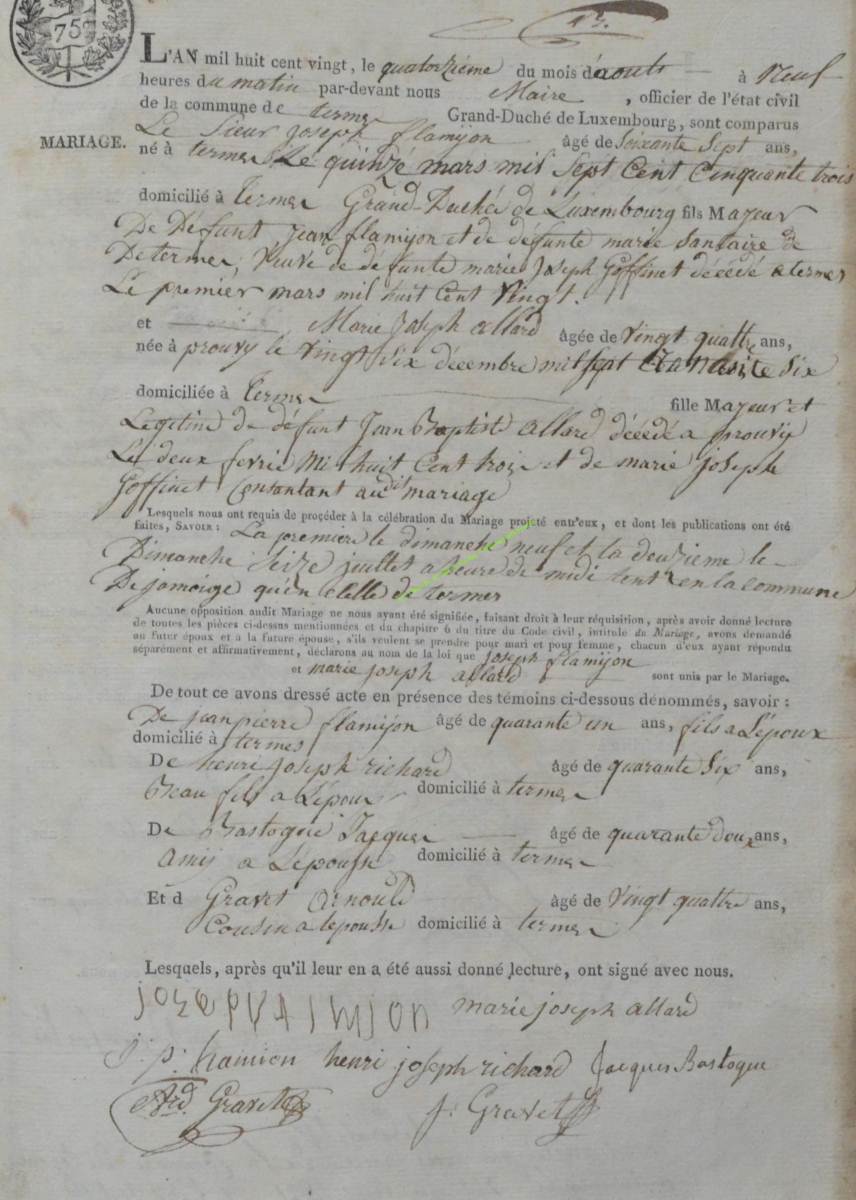 75
13.
L'AN mil huit cent vingt, le quatorzieme du mois d'aoutt à neuf
heures du matin par-devant nous Maire , officier de l'état civil
de la commune de termes Grand-Duché de Luxembourg, sont comparus
MARIAGE.
Le Sieur joseph flamijon âgé de Soixante Sept ans,
né à termes Le quinze mars mil Sept Cent Cinquante trois
domicilié à termes Grand-Duché de Luxembourg fils Majeur
De Défunt jean flamijon et de défunte marie Santaire de
De termes, veuve de défunte marie Joseph Goffinet décédé a termes
Le premier mars mil huit Cent Vingt.
et Marie Joseph allard âgée de vingt quattre ans,
née à prouvy le vingt Six décembre mil Sept Six
domiciliée à termes fille Majeur et
Legitime de défunt Jean Baptiste allard décédé a prouvy
Le deux fevrie mil huit Cent trois et de marie joseph
Goffinet Consantant audit mariage
Lesquels nous ont requis de procéder à la célébration du Mariage projeté entr'eux, et dont les publications ont été
faites, SAVOIR : La premiere le dimanche neuf et la deuzieme le
Dimanche Seize juillet a heure de midi tent en la commune
De jamoige qu'en Celle de termes
Aucune opposition audit Mariage ne nous ayant été signifiée, faisant droit à leur réquisition, après avoir donné lecture
de toutes les pièces ci-dessus mentionnées et du chapitre 6 du titre du Code civil, intitulé du Mariage, avons demandé
au futur époux et à la future épouse, s'ils veulent se prendre pour mari et pour femme, chacun d'eux ayant répondu
séparément et affirmativement, déclarons au nom de la loi que joseph flamijon
et marie joseph allard sont unis par le Mariage.
De tout ce avons dressé acte en présence des témoins ci-dessous dénommés, savoir :
De jean pierre flamijon âgé de quarante un ans, fils a Lépoux
domicilié à termes
De henri joseph richard âgé de quarante Six ans,
Beau fils a Lépoux domicilié à termes
De Bastogne Jacques âgé de quarante doux ans,
amis a Lépousse domicilié à termes
Et d Gravet Arnould âgé de Vingt quattre ans,
Cousin a lepousse domicilié à termes
Lesquels, après qu'il leur en a été aussi donné lecture, ont signé avec nous.
marie joseph allard
henri joseph richard Jacques Bastogne
Ard. Gravet j: Gravet